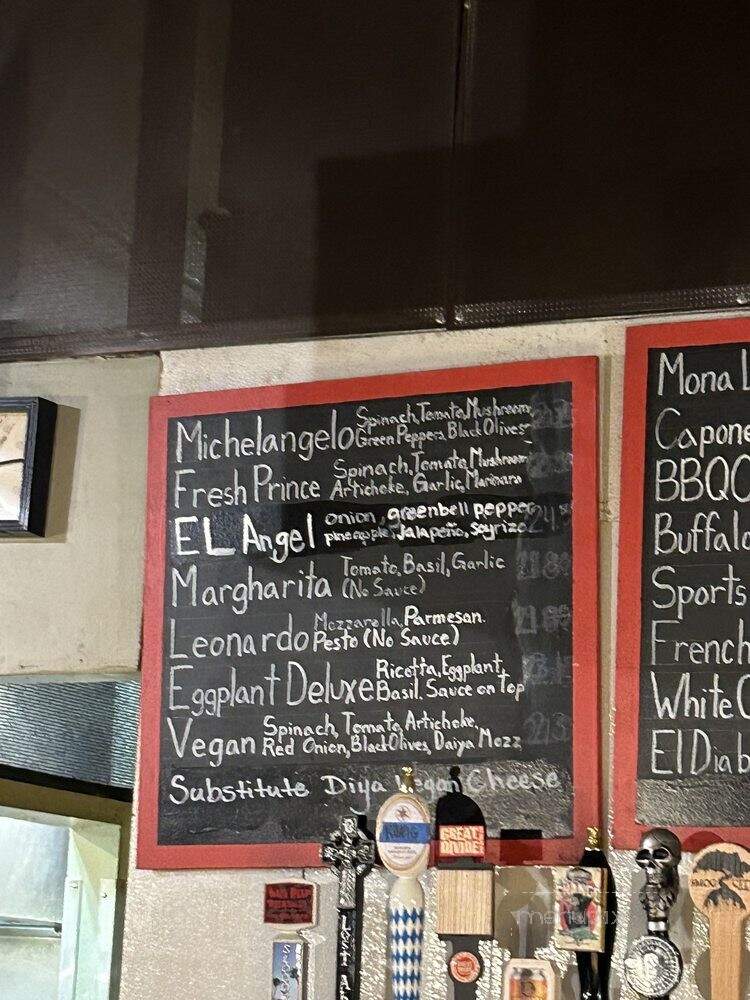 Michelangelo Spinach, Tomato, Mushroom,
Green Peppers, Black Olives
Fresh Prince Spinach, Tomato, Mushroom
Artichoke, Garlic, Marinara
EL Angel onion, greenbell pepper
pineapple, Jalapeño, soyrizo
Margharita Tomato, Basil, Garlic
(No Sauce)
Leonardo Mozzarella, Parmesan.
Pesto (No Sauce)
Eggplant Deluxe Ricotta, Eggplant,
Basil. Sauce on top
Vegan Spinach, Tomato, Artichoke,
Red Onion, Black Olives, Daiya Mozz
Substitute Diya Vegan Cheese
Mona L
Capone
BBQ
Buffalo
Sports
French
White
El Diab
GREAT
DIVIDE